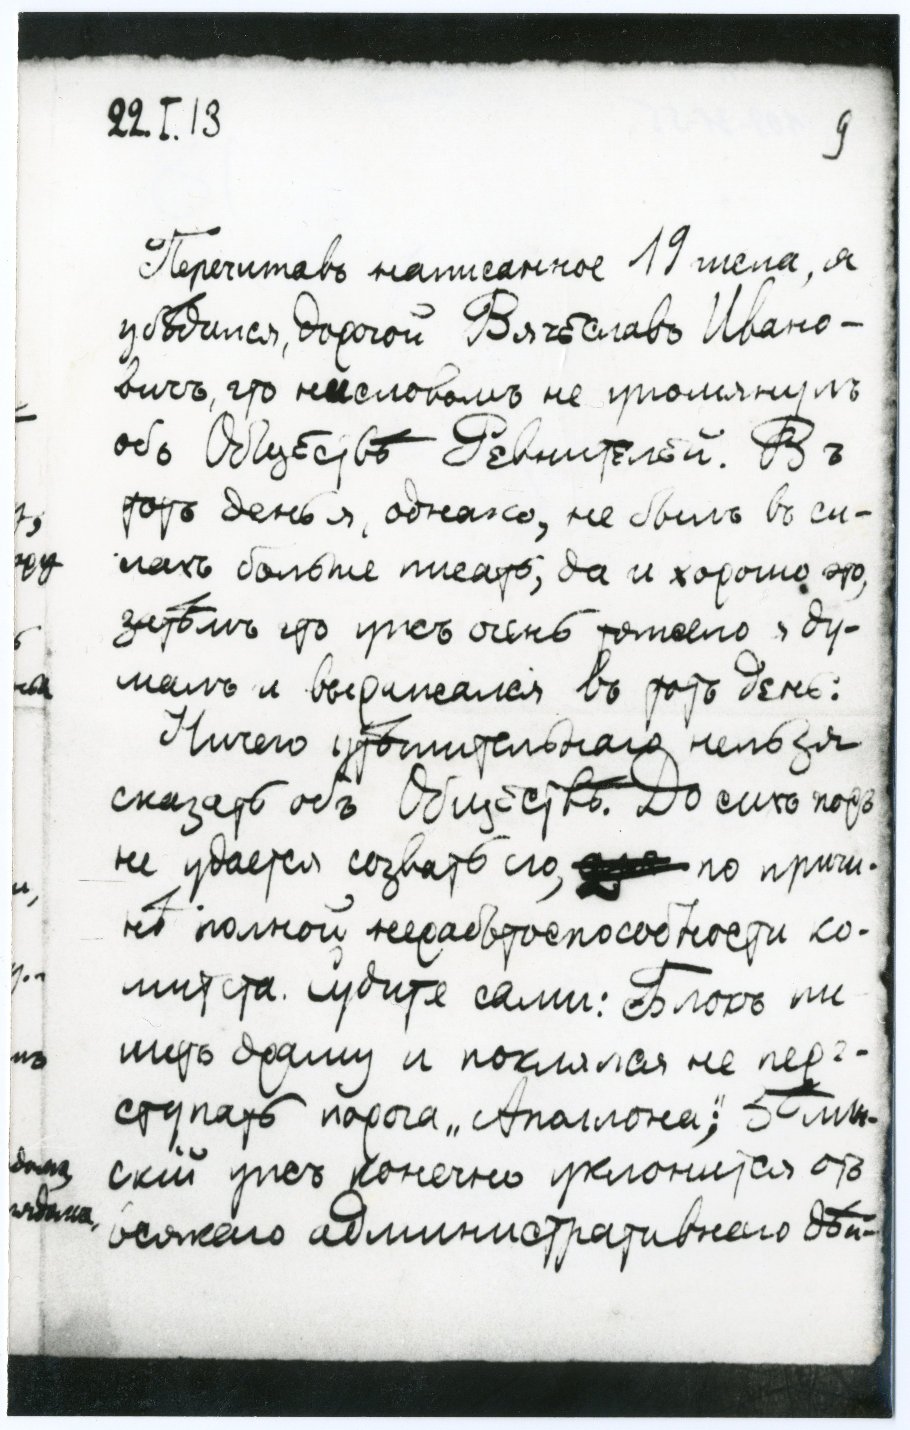 22.I.13
9
Перечитавъ написанное 19 числа, я
убѣдился, дорогой Вячеславъ Ивано-
вичъ, что ни словомъ не упомянулъ
объ Обществѣ Ревнителей. Въ
тотъ день я, однако, не былъ въ си-
лахъ больше писать, да и хорошо это,
затѣмъ что ужъ очень тяжело я ду-
малъ и выражался въ тотъ день:
Ничего утѣшительнаго нельзя
сказать объ Обществѣ. До сихъ поръ
не удается созвать его, по причи-
нѣ полной неработоспособности ко-
митета. Судите сами: Блокъ пи
шетъ драму и поклялся не пере-
ступать порога „Аполлона"; Зѣлин-
скій ужъ конечно уклонится отъ
всякаго административнаго дѣй-